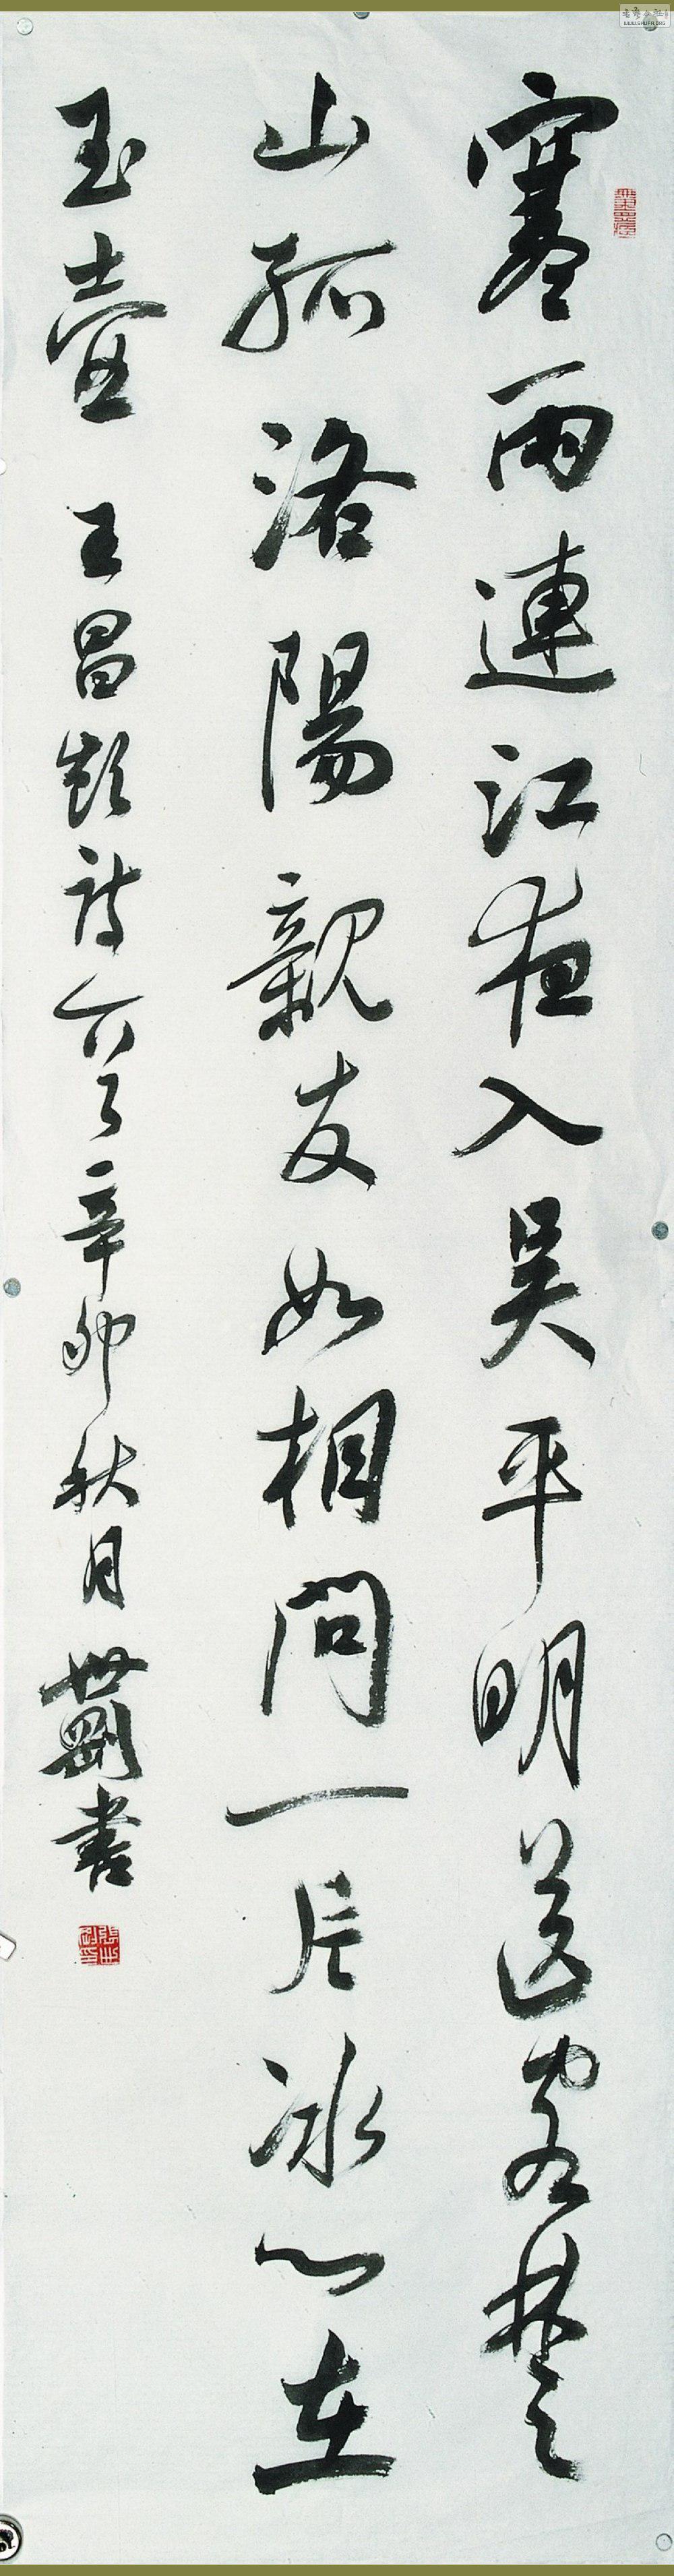 寒雨連江夜入吳平明送客楚
山孤洛陽親友如相問一片冰心在
玉壺 王昌齡詩一首辛卯秋月世劉書